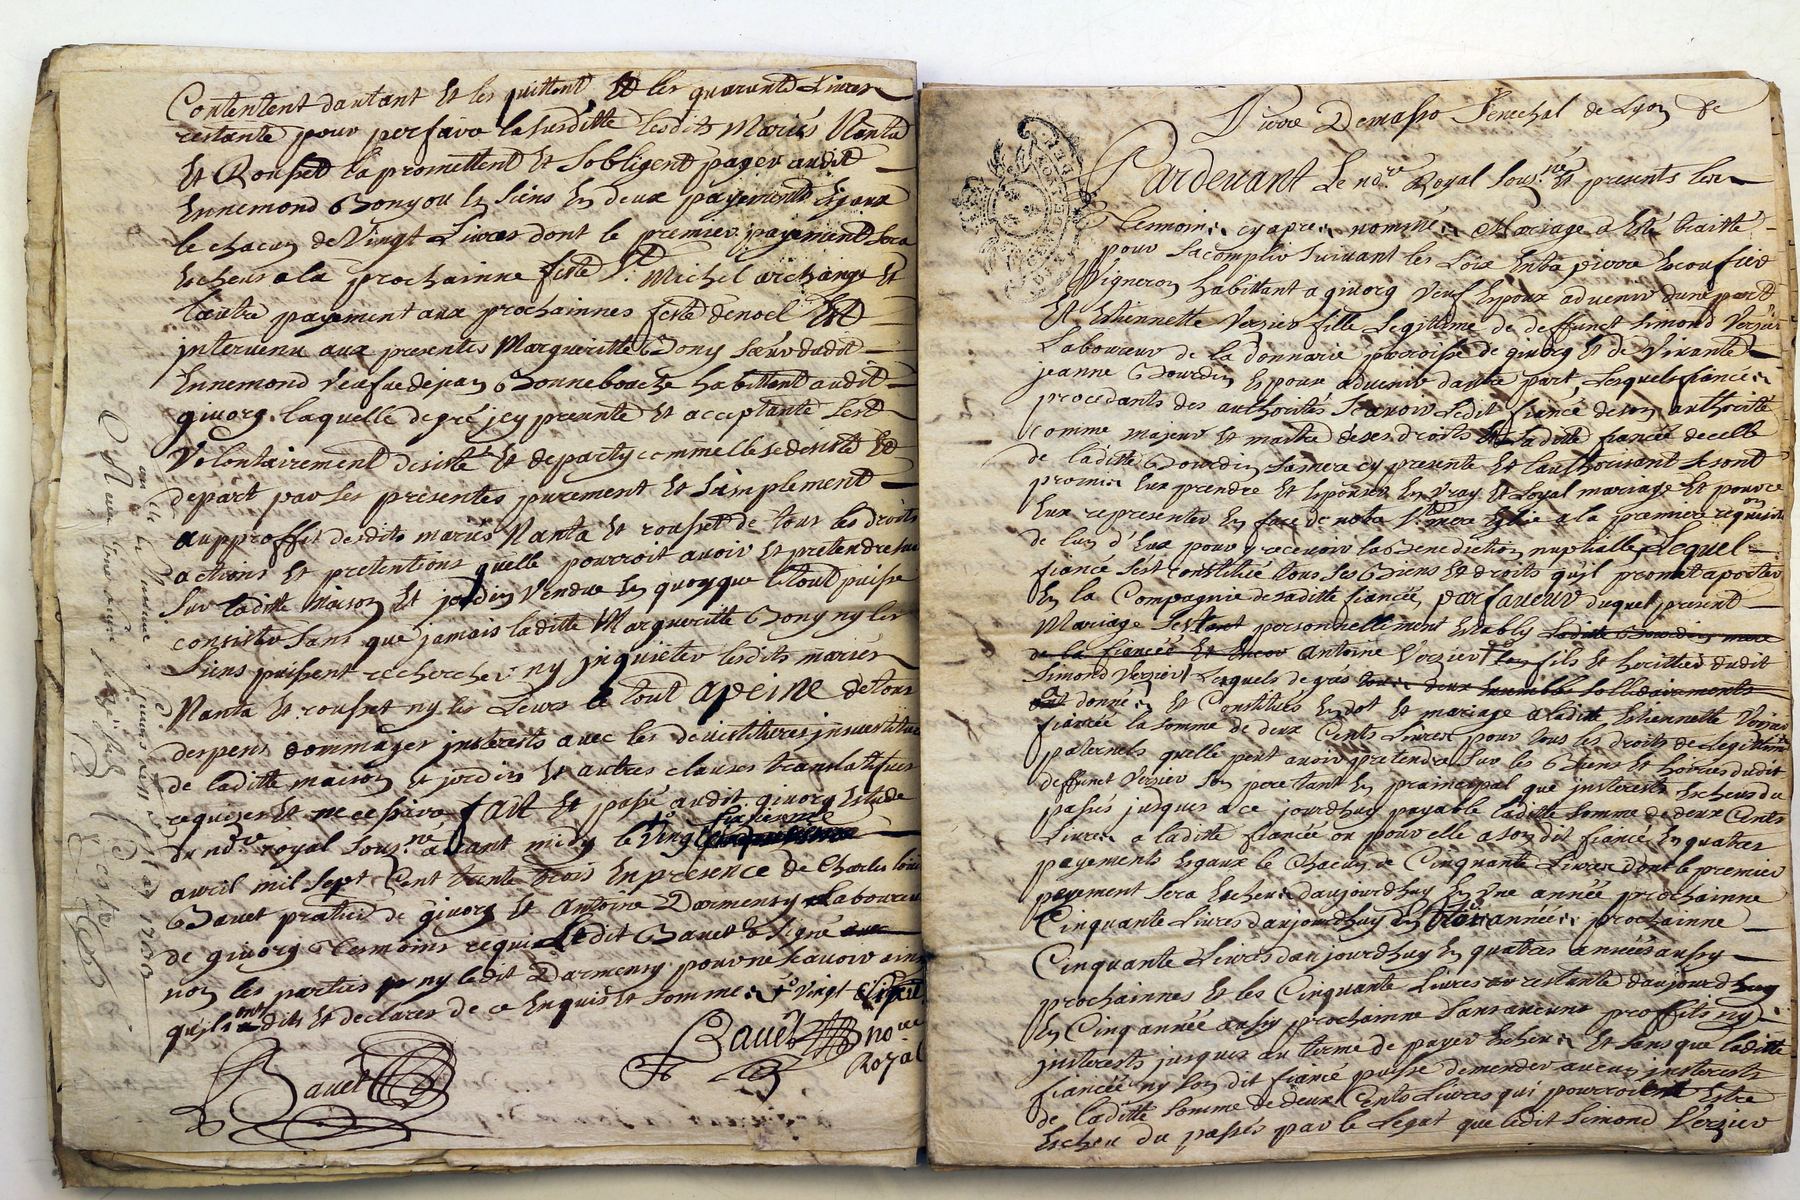 Contentent dautant Et les quittent Et les quarante Livres
restante pour perfaire la susditte lesdits Mariés Nanta
Et Rousset la promettent Et sobligent payer audit
Ennemond Bony ou les siens En deux payements Egaux
le chacun de Vingt Livres dont le premier payement sera
Escheus a la prochainne feste St. Michel archange Et
lautre payement aux prochainnes feste de noel Et
intervenu aux presentes Margueritte Bony sœur dudit
Ennemond veufue de jean Bonnebouche habittent audit
givorg laquelle de gré jcy presente Et acceptante sest
Volontairement desisté Et departy comme Elle se desiste Et
depart par les presentes purement Et simplement
aupproffit desdits mariés Nanta Et rousset de tous les droits
actions Et pretentions quelle pourroit avoir Et pretendre sur
sur laditte Maison Et jardin vendue En quoy que le tout puisse
consister sans que jamais laditte Margueritte Bony ny les
siens puissent rechercher ny jnquieter lesdits mariés
Nanta Et rousset ny les Leurs le tout apeine de tous
despens dommages jnterests avec les devestitures jnvestitures
de laditte maison Et jardin Et autres clauses translatifves
requises Et necessaire fait Et passé audit givorg Estude
du nore royal sous.né avant midy le Vingt sixiesme
avril mil sept Cent trente trois En presence de Charles louis
Bavet praticien de givorg Et Antoine Darmensy Laboureur
de givorg tesmoins requis Ledit Bavet a signé
non les parties ny ledit Darmensy pour ne scavoir ainsi
qu'ils ont dits Et declarés de ce Enquis Et sommés
Bavet
Bavet
nore
Royal
Pierre Demasso Senechal de Lyon
Pardevant Le nore Royal sous.né Et presents les
tesmoins cy apres nommés Mariage a Esté traitté
pour sacomplir suivant les Loix Entre pierre Escoufier
Vigneron habittant a givorg veuf Espoux advenir dune part
Et Estiennette Verzier fille Legitime de deffunct simond Verzier
Laboureur de la donnarie parroisse de givorg Et de vivante
jeanne Bourdin Espouse advenir dautre part, Lesquels fiancés
procedants des authorités scavoir Ledit fiancé de son authorité
comme majeur Et maitre de ses droits Et laditte fiancée de celle
de laditte Bourdin sa mere cy presente Et lauthorisant se sont
promis Eux prendre Et Espouser En vray Et Loyal mariage Et pour ce
Eux representer En face de notre Ste. mere Eglise a la premiere requisition
de lun d'Eux pour y recevoir la Benediction nuptialle Lequel
fiancé sest constitué tous ses Biens Et droits qu'jl promet aporter
En la Compagnie de saditte fiancée, par faveur duquel present
Mariage sestant personnellement Estably laditte Bourdin mere
de la fiancée Et Encor Antoine Verzier fils Et heritier dudit
Simond Verzier Lesquels de grés
ont donnés Et Constitués En dot Et mariage a laditte Estiennette Verzier
fiancée la somme de deux Cents Livres pour tous les droits de Legitime
paternels quelle peut avoir pretendre sur les Biens Et hoiries dudit
deffunct Verzier son pere tant En praincipal que jnterests Escheus du
passés jusques a ce jourdhuy payable laditte somme de deux Cents
Livres a laditte fiancée ou pour elle a son dit fiancé En quatre
payements Egaux le chacun de Cinquante Livres dont le premier
payement sera Escheus daujourdhuy En une année prochainne
Cinquante Livres daujourdhuy En trois années prochainne
Cinquante Livres daujourdhuy En quatres années aussy
prochainnes Et les Cinquante Livres restante daujourdhuy
En Cinq année aussy prochainne sans aucuns proffits ny
jnterests jusques au terme de payer Escheus Et sans que laditte
fiancée ny son dit fiancé puisse demender aucun jnterests
de laditte somme de deux Cents Livres qui pourroient Estre
Escheu du passés par le Legat que ledit Simond Verzier